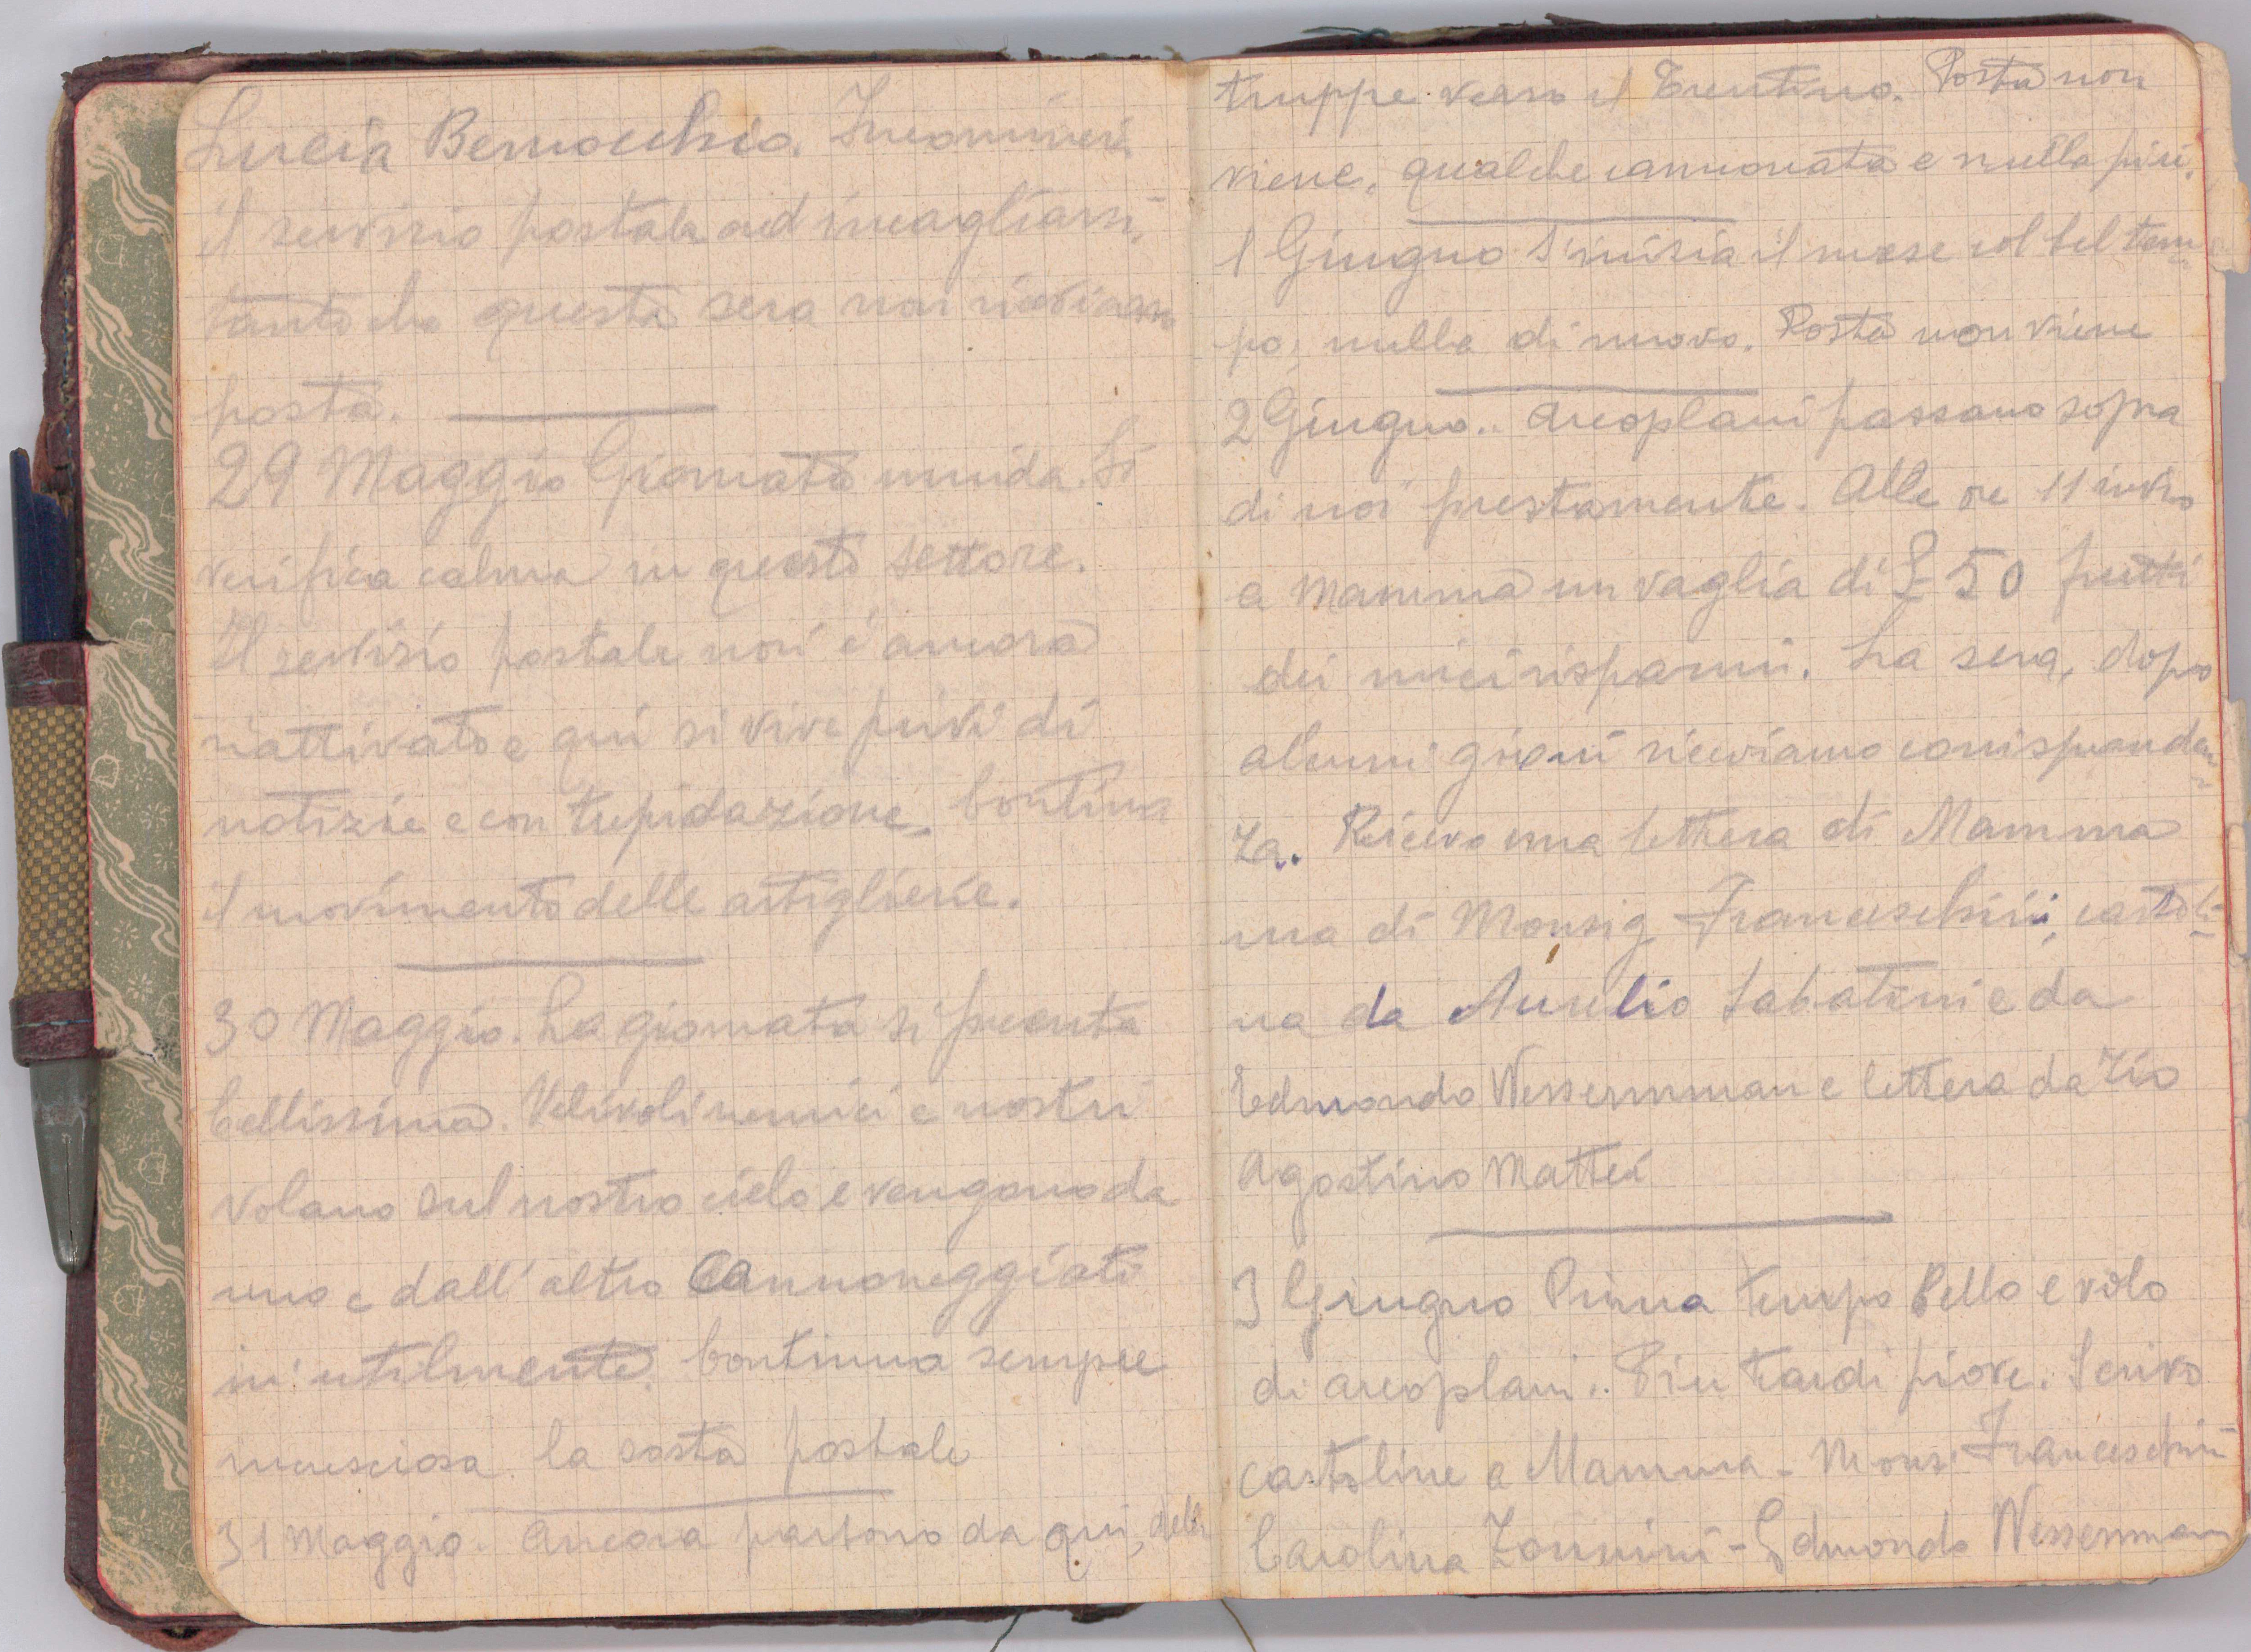 Lucia Bernocchio. Incomincia
il servizio postale ad incagliarsi,
tanto che questa sera non riceviamo
posta.
29 Maggio Giornata umida. Si
verifica calma in questo settore.
Il servizio postale non è ancora
riattivato e qui si vive privi di
notizie e con trepidazione. Continua
il movimento delle artiglierie.
30 Maggio. La giornata si presenta
bellissima. Velivoli nemici e nostri
volano sul nostro cielo e vengono da
uno e dall'altro cannoneggiati
inutilmente. Continua sempre
incresciosa la sosta postale
31 Maggio. Ancora partono da qui, delle
truppe verso il Trentino. Posta non
viene, qualche cannonata e nulla più.
1 Giugno S'inizia il mese col bel tem-
po, nulla di nuovo. Posta non viene
2 Giugno.. Areoplani passano sopra
di noi prestamente. Alle ore 11 invio
a mamma un vaglia di £ 50 frutti
dei miei risparmi. La sera, dopo
alcuni giorni riceviamo corrisponden-
za. Ricevo una lettera di Mamma
una di Monsig Franceschini, cartoli-
na da Aurelio Sabatini e da
Edmondo Wessermman e lettera da Zio
Agostino Mattei
3 Giugno Prima tempo bello e volo
di areoplani.. Piu tardi piove. Scrivo
cartoline a Mamma - Mons. Franceschini
Carolina Zannini - Edmondo Wessermann